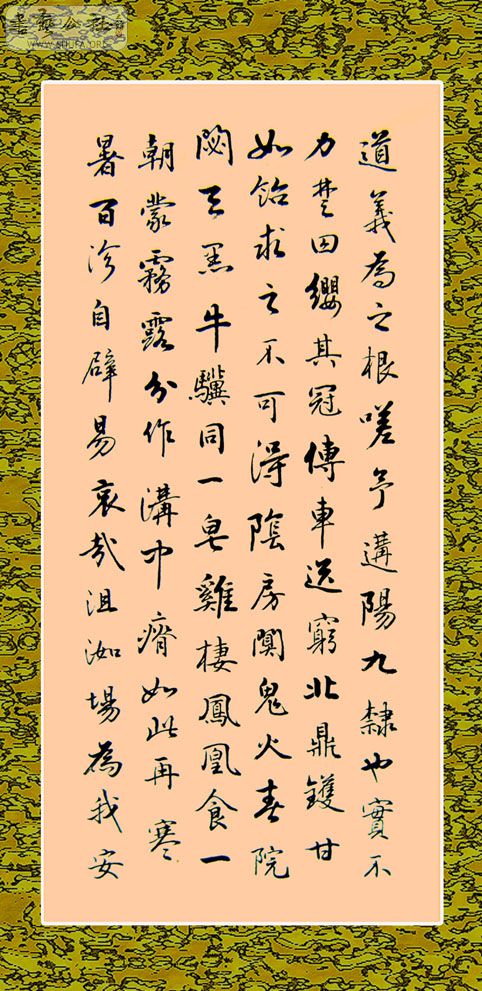 道義為之根嗟予遘陽九隸也實不
力楚囚纓其冠傳車送窮北鼎鑊甘
如飴求之不可得陰房闃鬼火春院
閟天黑牛驥同一皂雞棲鳳凰食一
朝蒙霧露分作溝中瘠如此再寒
暑百沴自辟易哀哉沮洳場為我安
書藝公社
WWW.SHUFA.ORG